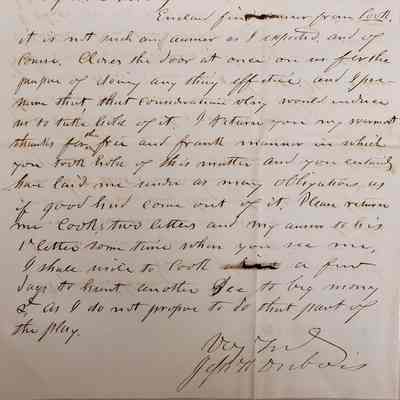 Enclosed find answer from Cook.
it is not such an answer as I expected and of
course. Closes the door at once on us for the
purpose of doing any thing effective and I pre-
sume that that consideration only would induce
us to take hold of it. I return you my warmest
thanks for the free and frank manner in which
you took hold of this matter and you certainly
have laid me under as many obligations as
if good had come out of it. Please return
me Cooks two letters and my answer to his
1st letter some time when you see me,
I shall write to Cook in a few
days to hunt another Joe to beg money
of as I do not propose to do that part of
the play.
Dubois